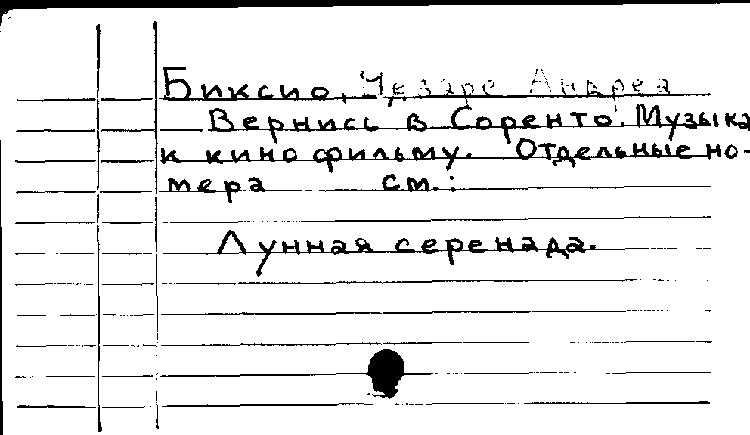 Биксио, Чезаре Андреа
Вернись в Соренто. Музыка
к кинофильму. Отдельные но-
мера см.:
Лунная серенада.